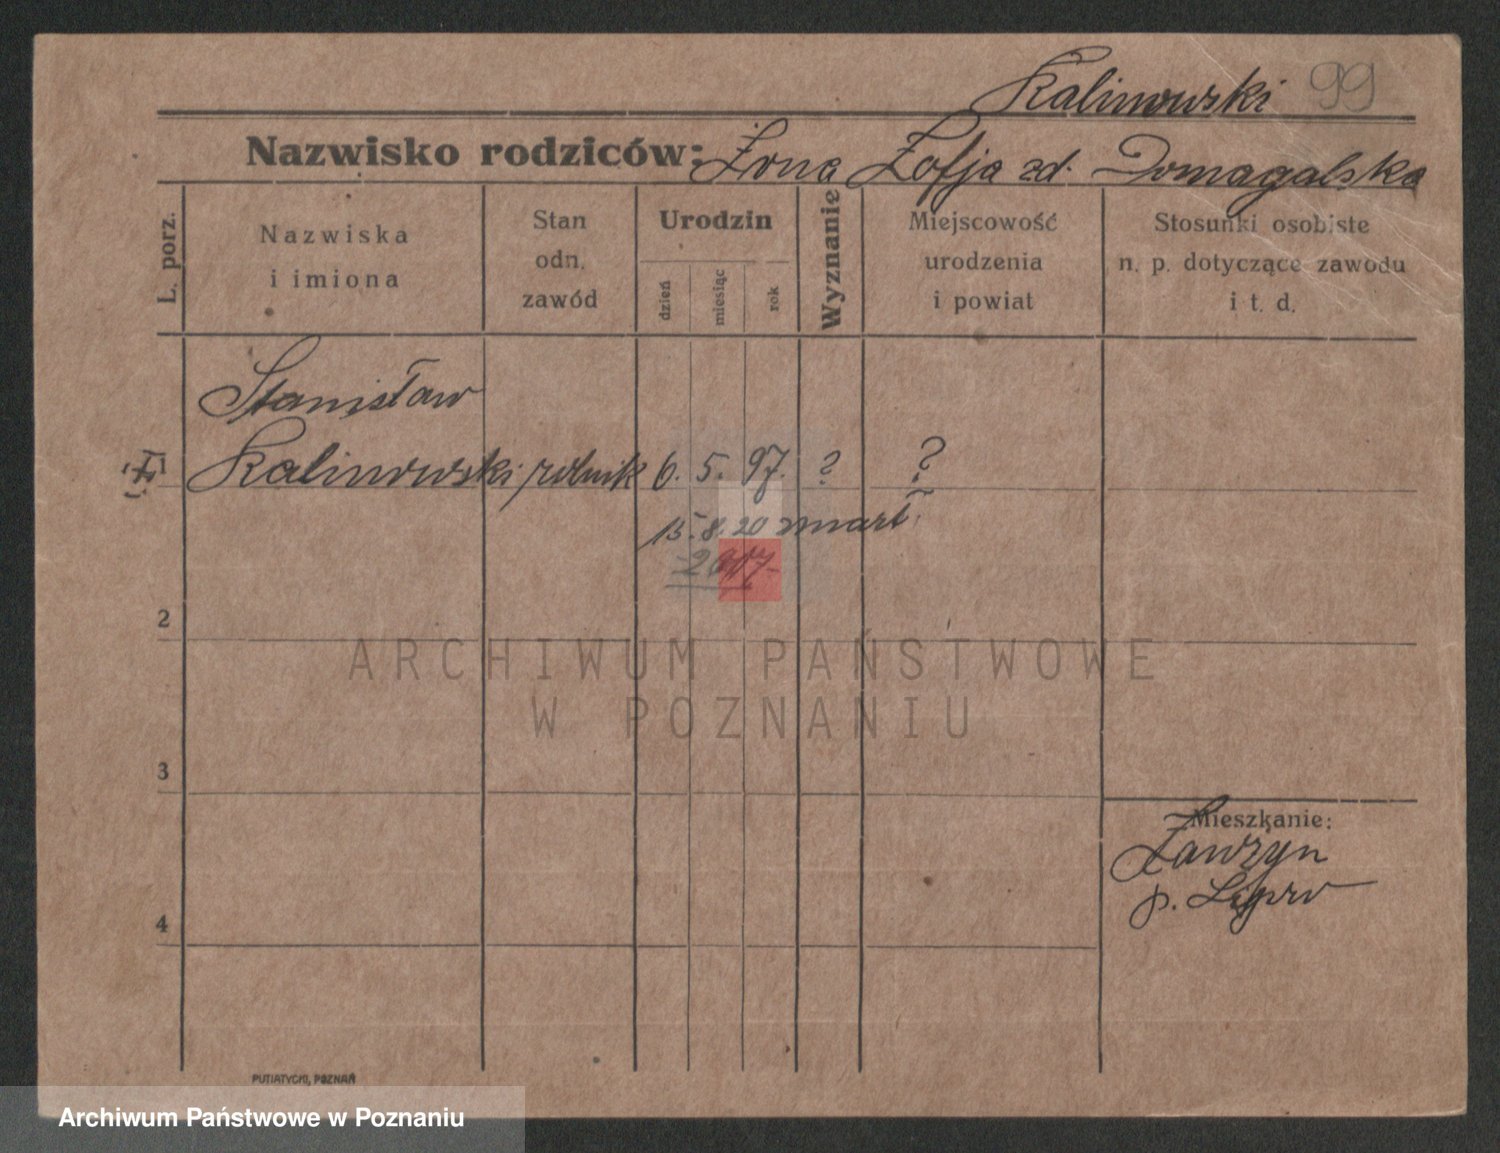 Kalinowski 99
Nazwisko rodziców: Żona Zofja zd. Domagalska
L. porz.
Nazwiska
i imiona
Stan
odn.
zawód
Urodzin
dzień
miesiąc
rok
Wyznanie
Miejscowość
urodzenia
i powiat
Stosunki osobiste
n. p. dotyczące zawodu
i t. d.
Stanisław
1 Kalinowski rolnik 6. 5. 97. ? ?
15.8.20 zmarł
2
ARCHIWUM PAŃSTWOWE
W POZNANIU
3
Mieszkanie:
Zawżyn
p. Lipw
4
PUTIATYCKI, POZNAŃ
Archiwum Państwowe w Poznaniu